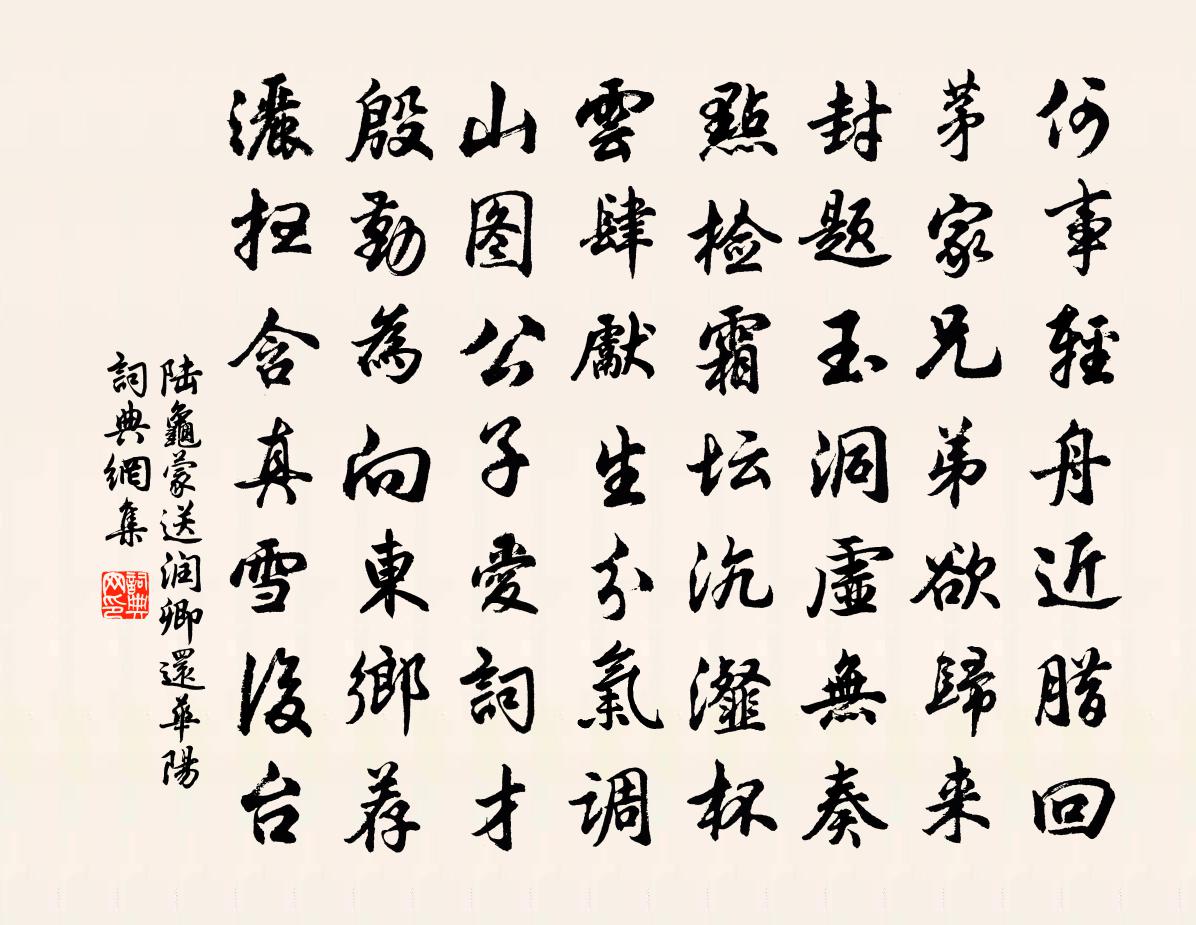 何事輕舟近腊回
茅家兄弟欲歸来
封题玉洞虛無奏
點检霜坛沆瀣杯
雲肆獻生分氣调
山图公子愛詞才
殷勤為向東鄉荐
灑扫含真雪後台
陆龜蒙送润卿還華陽
詞典網集
詞典网印